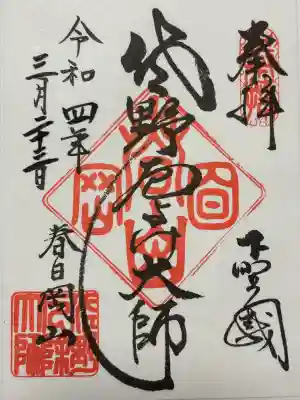 奉拝
下野國
佐野厄よけ大師
令和四年
三月二十三日
春日岡山